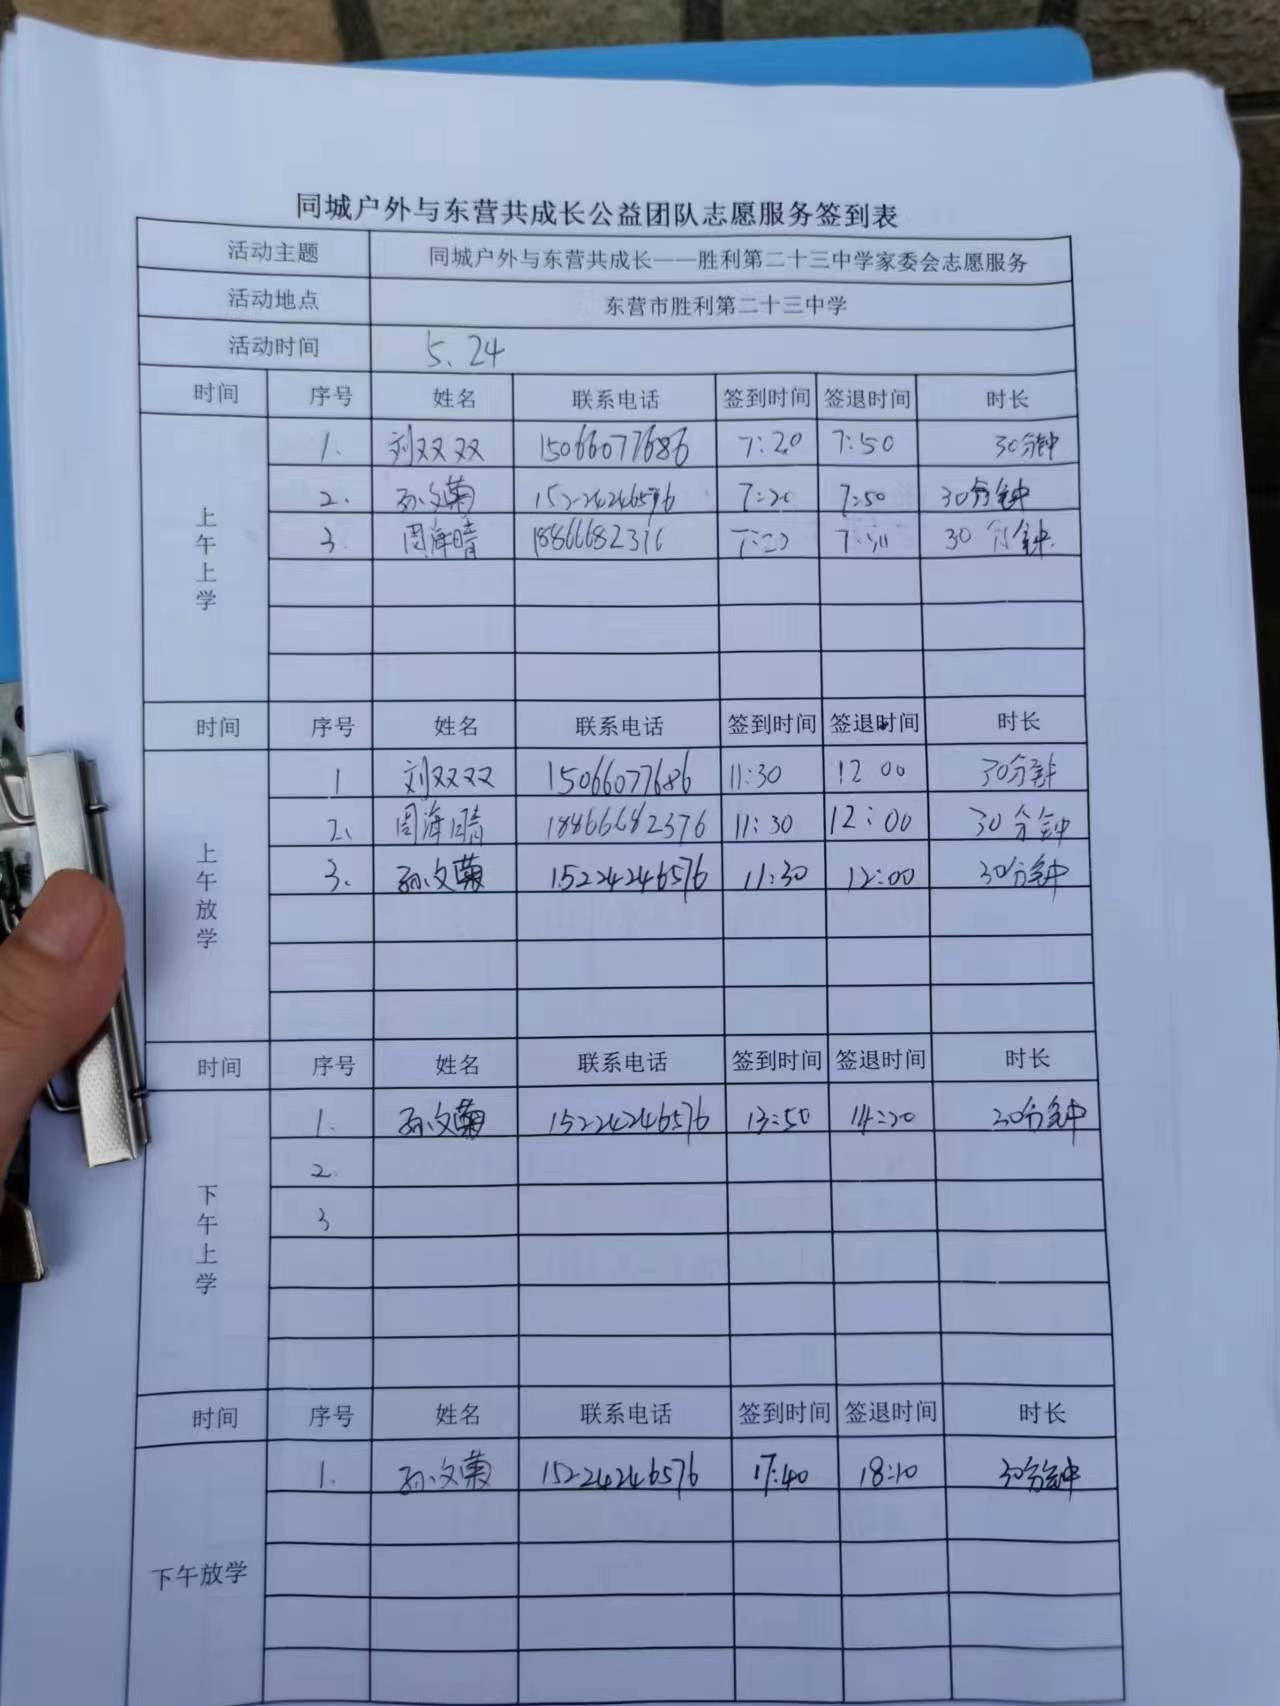 同城户外与东营共成长公益团队志愿服务签到表
活动主题 同城户外与东营共成长——胜利第二十三中学家委会志愿服务
活动地点 东营市胜利第二十三中学
活动时间 5.24
时间 序号 姓名 联系电话 签到时间 签退时间 时长
上午上学
1. 刘双双 15066077686 7:20 7:50 30分钟
2. 孙文菊 15224246576 7:20 7:50 30分钟
3. 周海晴 18866682376 7:20 30分钟.
时间 序号 姓名 联系电话 签到时间 签退时间 时长
上午放学
1 刘双双 15066077686 11:30 12 00 30分钟
2. 周海晴 18866682376 11:30 12:00 30分钟
3. 孙文菊 15224246576 11:30 12:00 30分钟
时间 序号 姓名 联系电话 签到时间 签退时间 时长
下午上学
1. 孙文菊 15224246576 13:50 14:20 30分钟
2.
3
时间 序号 姓名 联系电话 签到时间 签退时间 时长
下午放学
1. 孙文菊 15224246576 17:40 18:10 30分钟